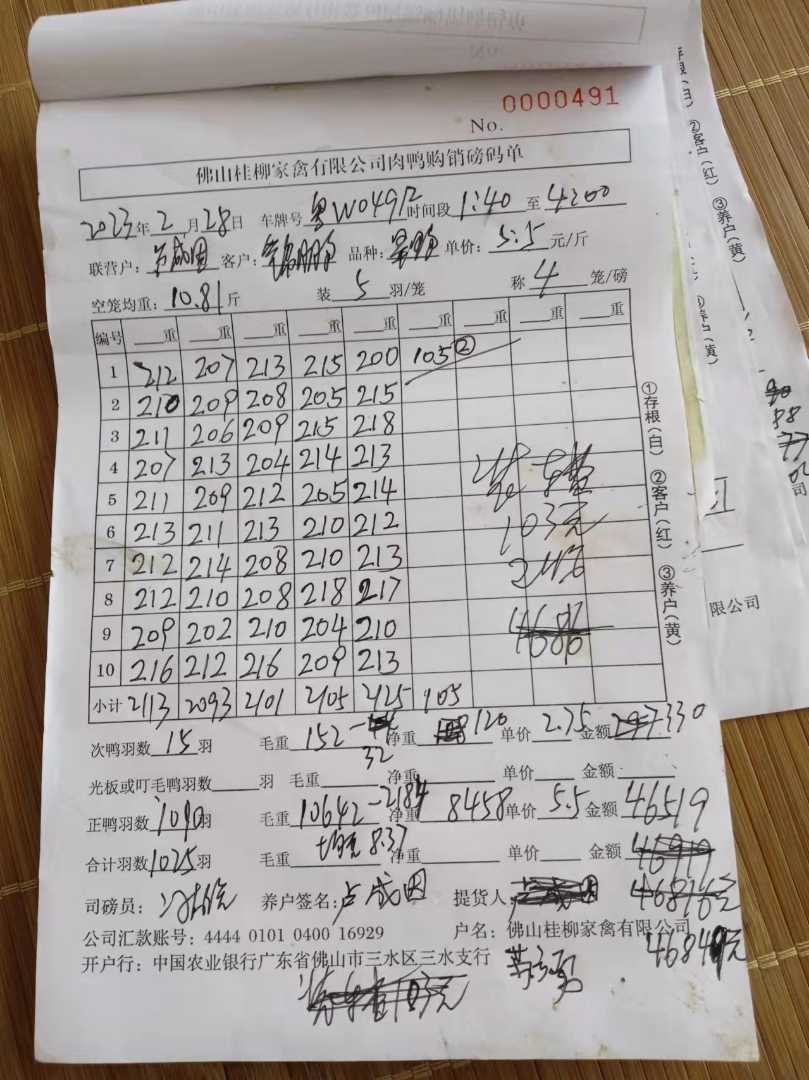 No. 0000491
佛山桂柳家禽有限公司肉鸭购销磅码单
2023年2月28日 车牌号 粤W049 时间段 1:40 至 4:00
联营户: 卢成因 客户: 品种: 单价: 5.5 元/斤
空笼均重: 10.81 斤 装 5 羽/笼 称 4 笼/磅
编号 重 重 重 重 重 重 重 重 重
1 212 207 213 215 200 105 ②
2 210 209 208 205 215
3 211 206 209 215 218
4 207 213 204 214 213
5 211 209 212 205 214
6 213 211 213 210 212
7 212 214 208 210 213
8 212 210 208 218 217
9 209 202 210 204 210
10 216 212 216 209 213
小计 2113 2093 2101 2105 2125 105
103元
①存根(白) ②客户(红) ③养户(黄)
次鸭羽数 15 羽 毛重 152-32 净重 120 单价 2.75 金额 330
光板或叮毛鸭羽数 羽 毛重 净重 单价 金额
正鸭羽数 1010 羽 毛重 10642-2184 净重 8458 单价 5.5 金额 46519
合计羽数 1025 羽 毛重 均重 8.37 净重 单价 金额
司磅员: 养户签名: 卢成因 提货人: 46849元
公司汇款账号: 4444 0101 0400 16929 户名: 佛山桂柳家禽有限公司
开户行: 中国农业银行广东省佛山市三水区三水支行
②客户(红) ③养户(黄)
限公司